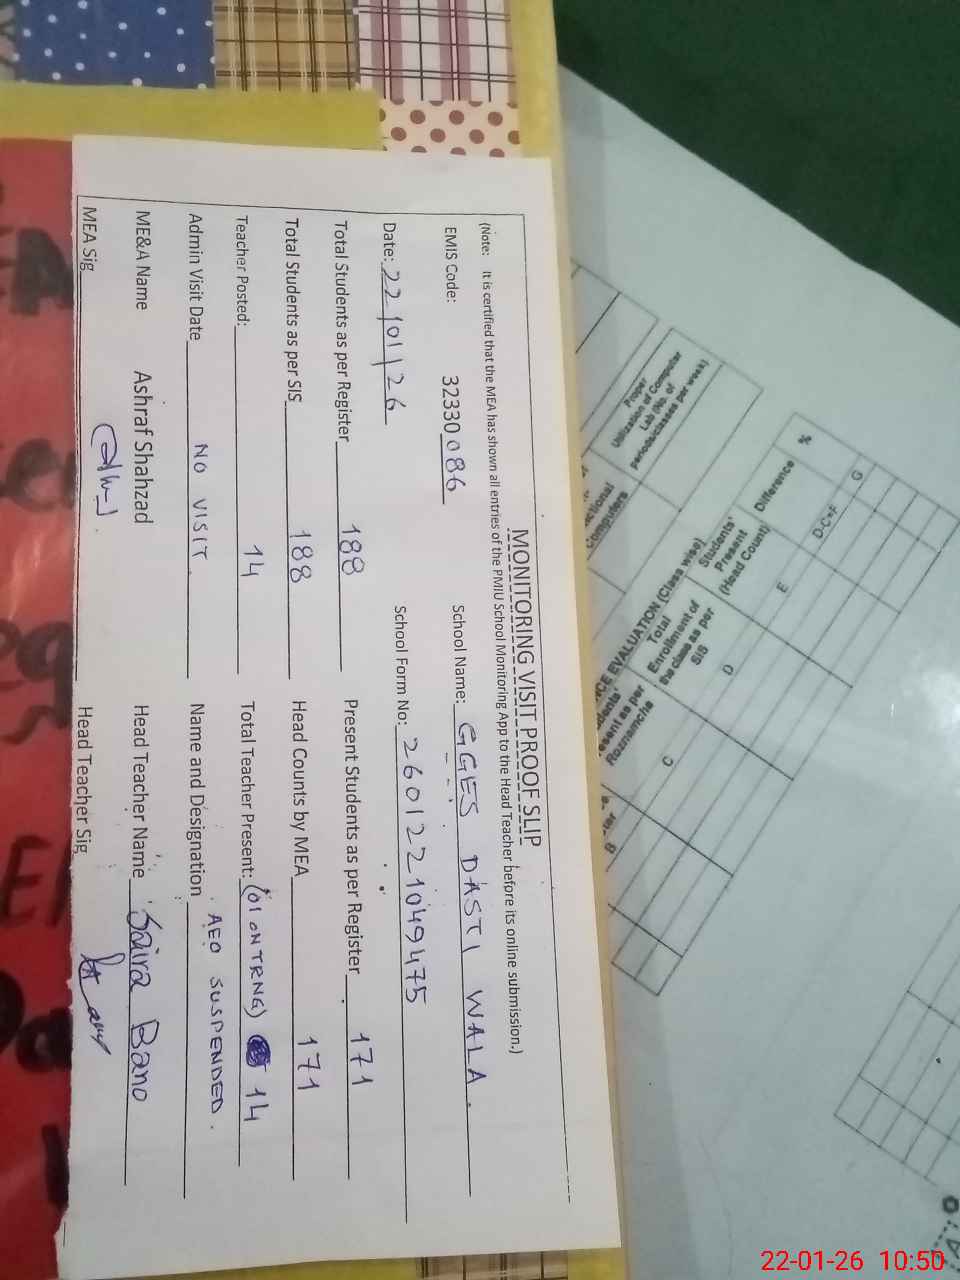 MONITORING VISIT PROOF SLIP
(Note: It is certified that the MEA has shown all entries of the PMIU School Monitoring App to the Head Teacher before its online submission.)
EMIS Code: 32330086 School Name: GGES DASTI WALA.
Date: 22/01/26 School Form No: 2601221049475
Total Students as per Register 188 Present Students as per Register 171
Total Students as per SIS 188 Head Counts by MEA 171
Teacher Posted: 14 Total Teacher Present: (01 ON TRNG) 14
Admin Visit Date NO VISIT. Name and Designation AEO SUSPENDED.
ME&A Name Ashraf Shahzad Head Teacher Name Saira Bano
MEA Sig Head Teacher Sig
Proper
Utilization of Computer
Lab (No. of
periods/classes per week)
Computers
EVALUATION (Class wise)
Roznamcha
Total
Enrollment of
the class as per
SIS
Students'
Present
(Head Count)
Difference
%
B
C
D
E
D-C=F
G
22-01-26 10:50